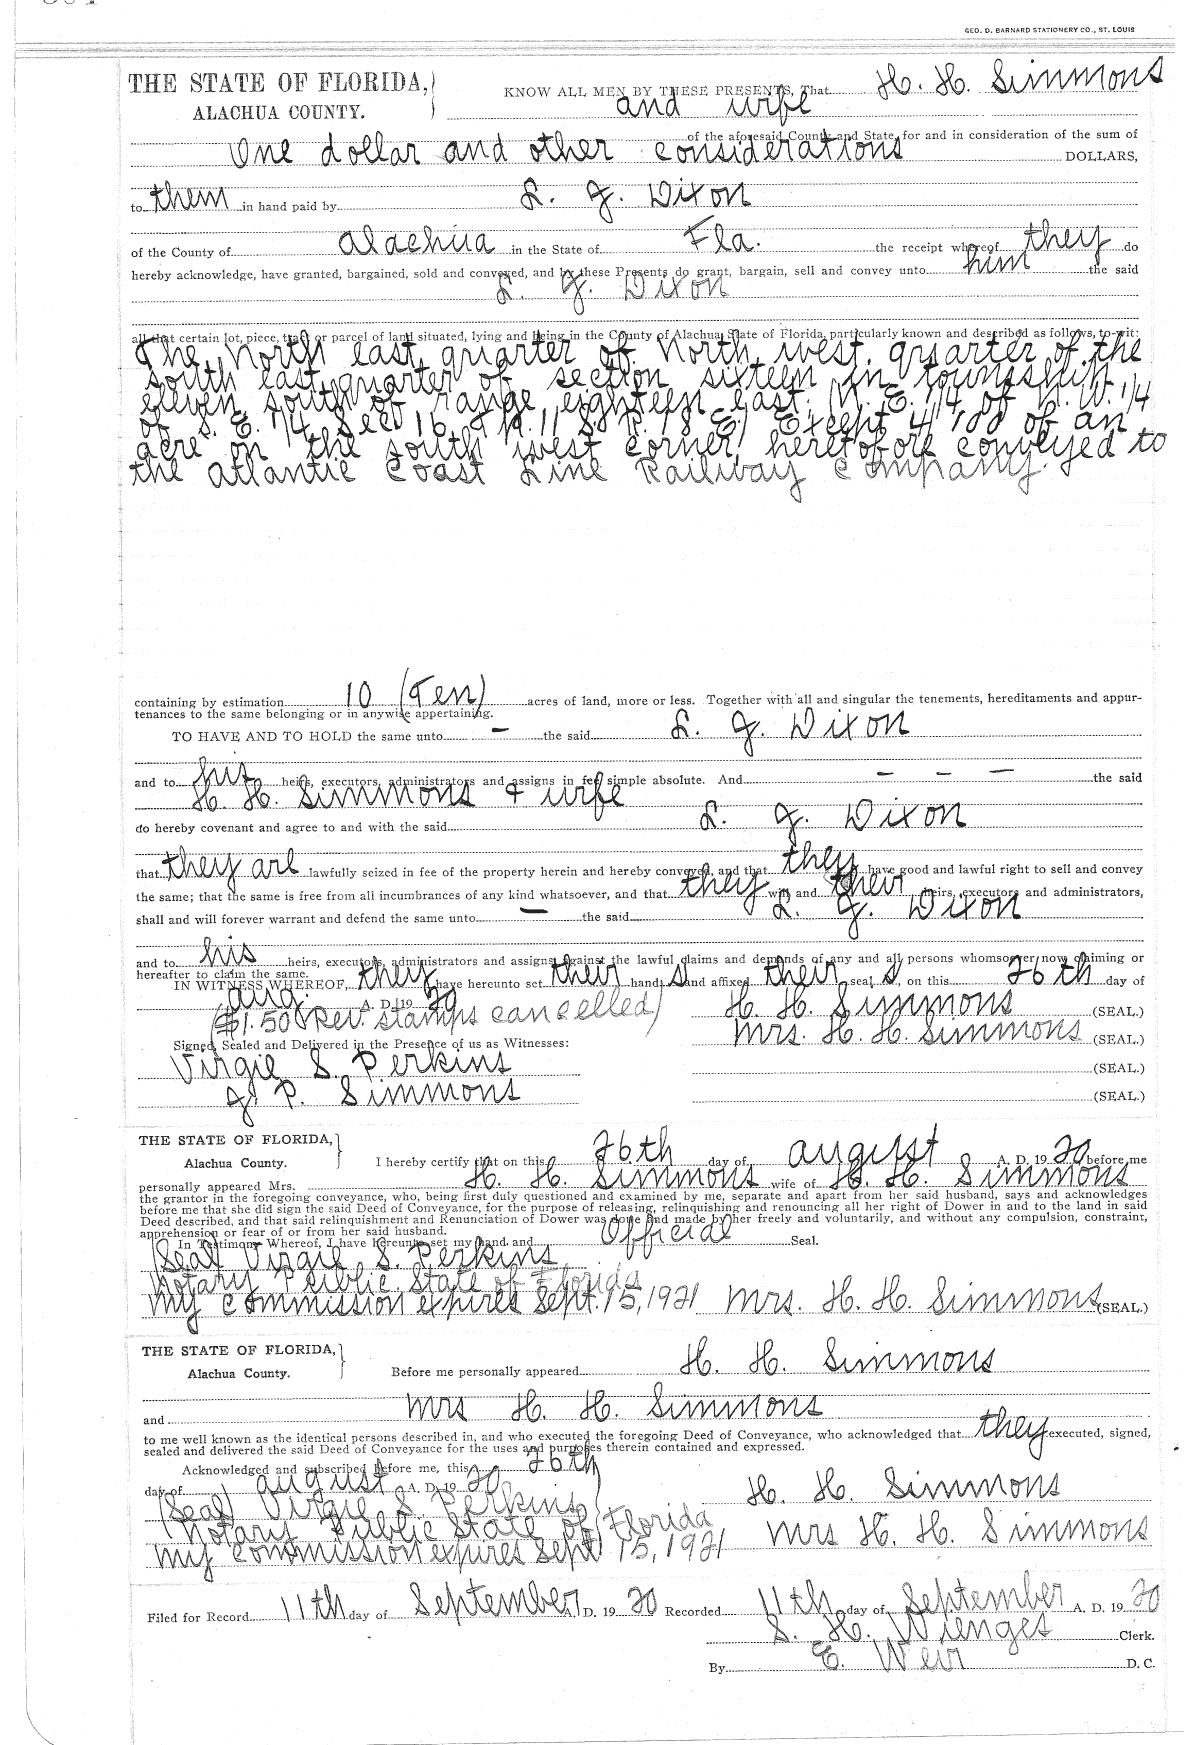 GEO. D. BARNARD STATIONERY CO., ST. LOUIS
THE STATE OF FLORIDA, } KNOW ALL MEN BY THESE PRESENTS, That H. H. Simmons
ALACHUA COUNTY. and wife
of the aforesaid County and State, for and in consideration of the sum of
One dollar and other considerations DOLLARS,
to them in hand paid by L. J. Dixon
of the County of Alachua in the State of Fla. the receipt whereof they do
hereby acknowledge, have granted, bargained, sold and conveyed, and by these Presents do grant, bargain, sell and convey unto him the said
L. J. Dixon
all that certain lot, piece, tract or parcel of land situated, lying and being in the County of Alachua, State of Florida, particularly known and described as follows, to-wit:
The North east quarter of North west quarter of the
south east quarter of section sixteen in township
eleven south of range eighteen east. N. E. 1/4 of N. W. 1/4
of S. E. 1/4 Sec 16, T. 11 S. R. 18 E. Except 4/100 of an
acre in the south west corner heretofore conveyed to
the Atlantic Coast Line Railway Company.
containing by estimation 10 (Ten) acres of land, more or less. Together with all and singular the tenements, hereditaments and appur-
tenances to the same belonging or in anywise appertaining.
TO HAVE AND TO HOLD the same unto — the said L. J. Dixon
and to his heirs, executors, administrators and assigns in fee simple absolute. And — — — the said
H. H. Simmons & wife
do hereby covenant and agree to and with the said L. J. Dixon
that they are lawfully seized in fee of the property herein and hereby conveyed, and that they have good and lawful right to sell and convey
the same; that the same is free from all incumbrances of any kind whatsoever, and that they will and their heirs, executors and administrators,
shall and will forever warrant and defend the same unto — the said L. J. Dixon
and to his heirs, executors, administrators and assigns against the lawful claims and demands of any and all persons whomsoever now claiming or
hereafter to claim the same.
IN WITNESS WHEREOF, they have hereunto set their hand s and affixed their seal s, on this 26th day of
Aug. A. D. 19 20 H. H. Simmons (SEAL.)
($1.50 Rev. stamps cancelled) Mrs. H. H. Simmons (SEAL.)
Signed, Sealed and Delivered in the Presence of us as Witnesses:
Virgie S. Perkins (SEAL.)
J. P. Simmons (SEAL.)
THE STATE OF FLORIDA, }
Alachua County. I hereby certify that on this 26th day of August A. D. 19 20 before me
personally appeared Mrs. H. H. Simmons wife of H. H. Simmons
the grantor in the foregoing conveyance, who, being first duly questioned and examined by me, separate and apart from her said husband, says and acknowledges
before me that she did sign the said Deed of Conveyance, for the purpose of releasing, relinquishing and renouncing all her right of Dower in and to the land in said
Deed described, and that said relinquishment and Renunciation of Dower was done and made by her freely and voluntarily, and without any compulsion, constraint,
apprehension or fear of or from her said husband.
In Testimony Whereof, I have hereunto set my hand and Official Seal.
(Seal) Virgie S. Perkins
Notary Public State of Florida
My commission expires Sept. 15, 1921 Mrs. H. H. Simmons (SEAL.)
THE STATE OF FLORIDA, }
Alachua County. Before me personally appeared H. H. Simmons
and Mrs H. H. Simmons
to me well known as the identical persons described in, and who executed the foregoing Deed of Conveyance, who acknowledged that they executed, signed,
sealed and delivered the said Deed of Conveyance for the uses and purposes therein contained and expressed.
Acknowledged and subscribed before me, this 26th
day of August A. D. 19 20 H. H. Simmons
(Seal) Virgie S. Perkins
Notary Public State of Florida Mrs H. H. Simmons
My commission expires Sept 15, 1921
Filed for Record 11th day of September A. D. 19 20 Recorded 11th day of September A. D. 19 20
S. H. Wienges Clerk.
By E. Weir D. C.